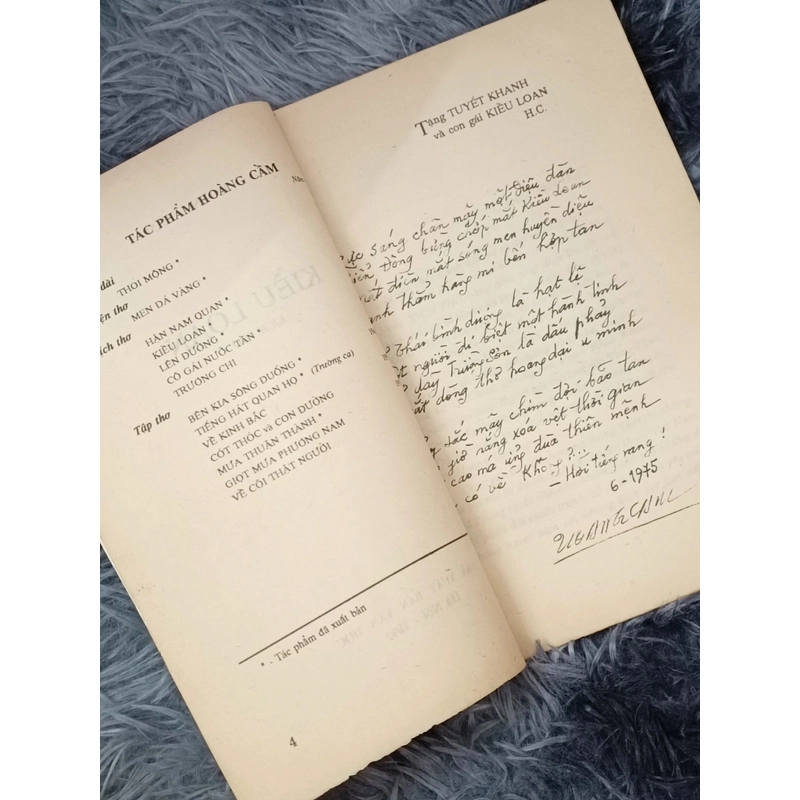 TÁC PHẨM HOÀNG CẦM
dài
THOI MỘNG *
thơ
MEN ĐÁ VÀNG *
ích thơ
HẬN NAM QUAN *
KIỀU LOAN *
LÊN ĐƯỜNG *
CÔ GÁI NƯỚC TẦN *
TRƯƠNG CHI
Tập thơ
BÊN KIA SÔNG ĐUỐNG *
TIẾNG HÁT QUAN HỌ * (Trường ca)
VỀ KINH BẮC
CỐT THÓC và CON ĐƯỜNG
MƯA THUẬN THÀNH *
GIỌT MƯA PHƯƠNG NAM
VỀ CÕI THẤT NGƯỜI
* - Tác phẩm đã xuất bản
4
Tặng TUYẾT KHANH
và con gái KIỀU LOAN
H.C.
sáng chân mây một điệu đàn
Đồng bừng chớp mắt Kiều Loan
điên nát sóng men huyền diệu
thẳm hàng mi bến hợp tan
Thái bình dương là hạt lệ
người đi biệt một hành tinh
dãy Trường Sơn là dấu phẩy
dòng thơ hoang dại u minh
tấc mây chìm đời bão tan
giờ nắng xóa vệt thời gian
cao má ửng đùa thiên mệnh
có về Không?...
- Hỡi tiếng vang !
6-1975
HOANGCAM